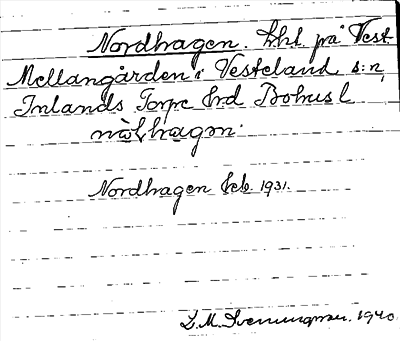 Nordhagen. Lht. på Vest-
Mellangården i Vesteland s:n,
Inlands Torpe hrd Bohusl
nɷ̀ḷhagən.
Nordhagen Jeb. 1931.
L.M. Svenungsson. 1940